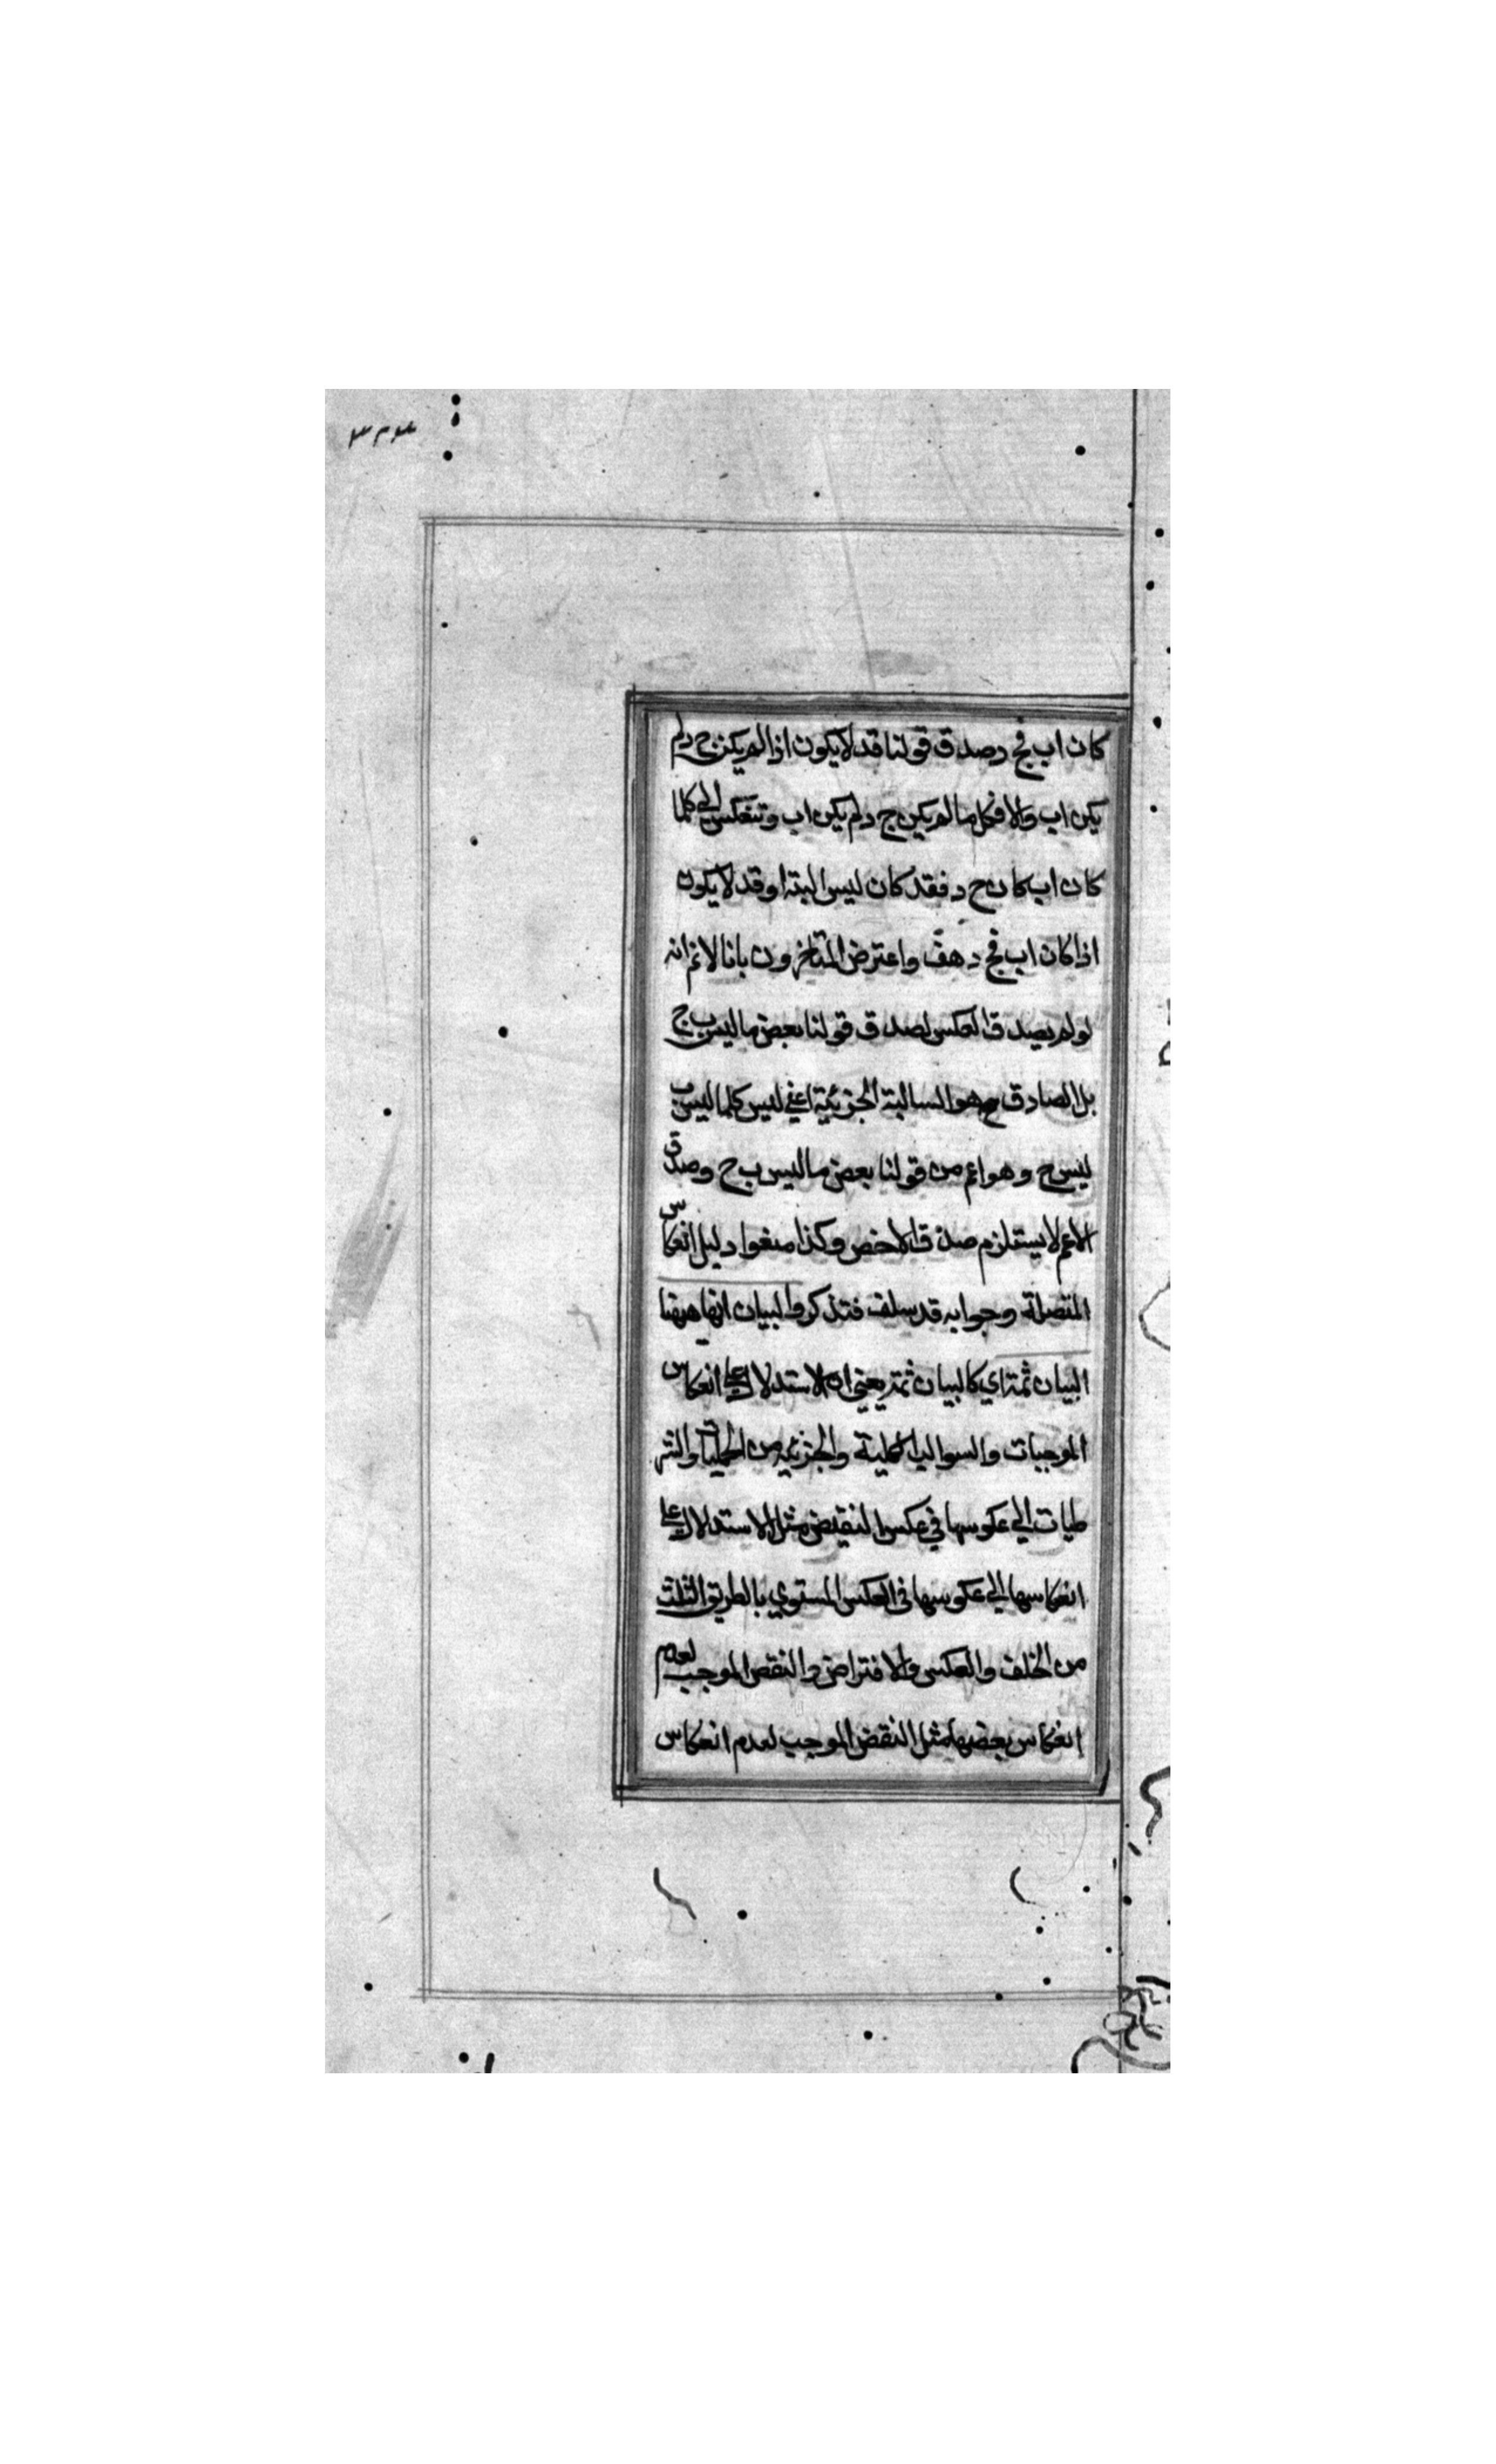 ٣٢٣
كان اب فج د صدق قولنا قد لا يكون اذا لم يكن ج د لم
يكن اب والا فكلما لم يكن ج د لم يكن اب وتنعكس الي كلما
كان اب كان ج د فقد كان ليس البتة او قد لا يكون
اذا كان اب فج د هف واعترض المتاخرون بانا لا نم انه
لو لم يصدق العكس لصدق قولنا بعض ما ليس ب ج
بل الصادق ح هو السالبة الجزئية اعني ليس كلما ليس ب
ليس ج وهو اعم من قولنا بعض ما ليس ب ج وصدق
الاعم لا يستلزم صدق الاخص وكذا منعوا دليل انعكاس
المتصلة وجوابه قد سلف فتذكر والبيان ههنا
البيان ثمة اي كالبيان ثمة يعني ان الاستدلال علي انعكاس
الموجبات والسوالب الكلية والجزئية من الحمليات والشر
طيات الي عكوسها في عكس النقيض مثل الاستدلال علي
انعكاسها الي عكوسها في العكس المستوي بالطريق الثلث
من الخلف والعكس والافتراض والنقض الموجب لعدم
انعكاس بعضها مثل النقض الموجب لعدم انعكاس